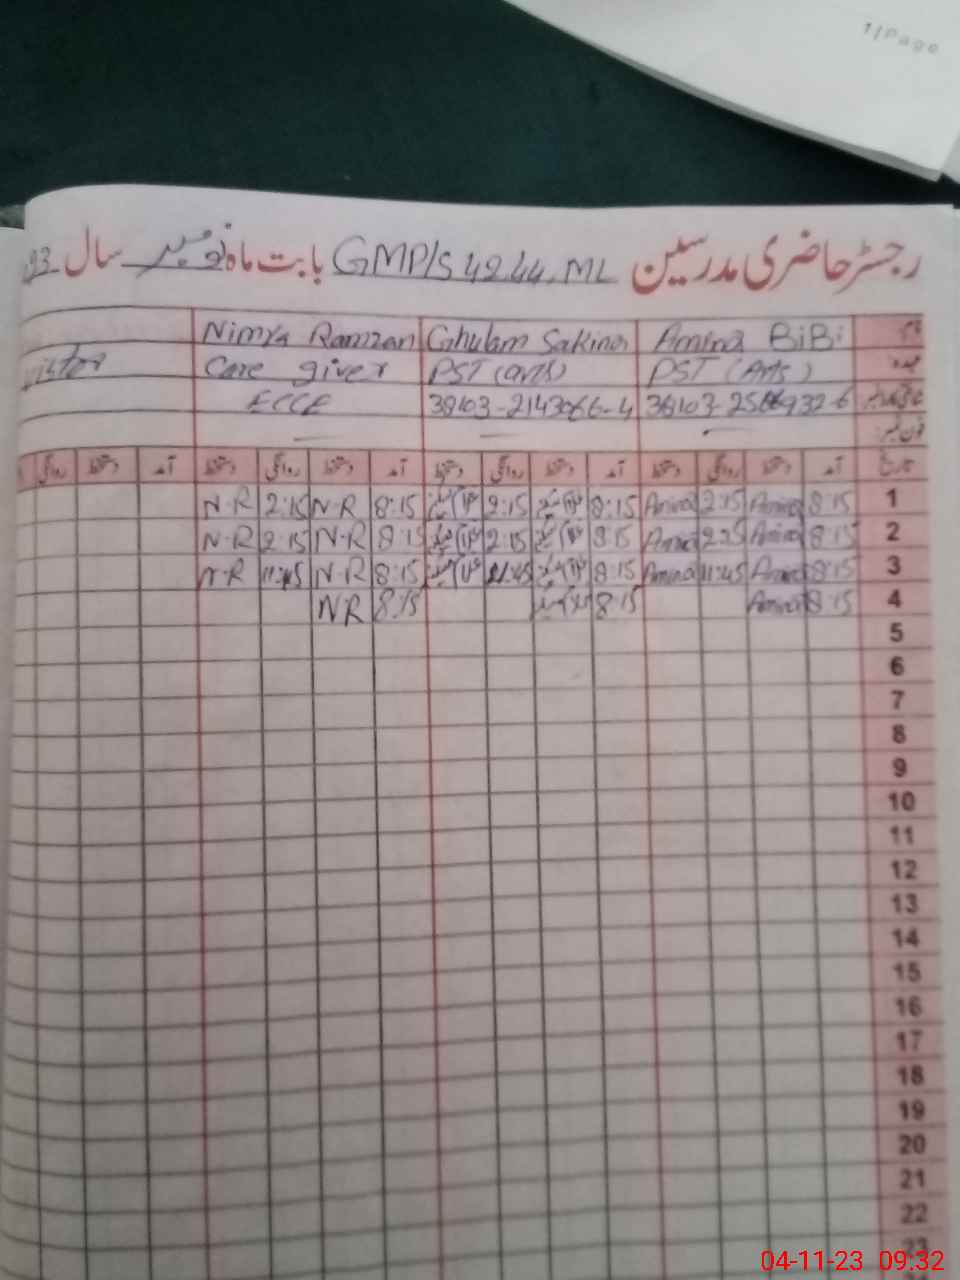 1 | Page
رجسٹر حاضری مدرسین GMP/S 42.44.ML بابت ماہ نومبر سال 23
نام Amina BiBi Ghulam Sakina Nimra Ramzan
عہدہ PST (Arts) PST (arts) Care giver
شناختی کارڈ نمبر 38103-2143066-4 ECCE
فون نمبر:
تاریخ آمد دستخط روانگی دستخط آمد دستخط روانگی دستخط آمد دستخط روانگی دستخط آمد دستخط روانگی
1 8:15 Amina 2:15 Amina 8:15 2:15 8:15 N-R 2:15 N-R
2 8:15 Amina 2:25 Amina 8:15 2:15 8:15 N-R 2:15 N-R
3 8:15 Amina 11:45 Amina 8:15 11:45 8:15 N-R 11:45 N-R
4 8:15 Amina 8:15 8:15 N-R
5
6
7
8
9
10
11
12
13
14
15
16
17
18
19
20
21
22
23
04-11-23 09:32